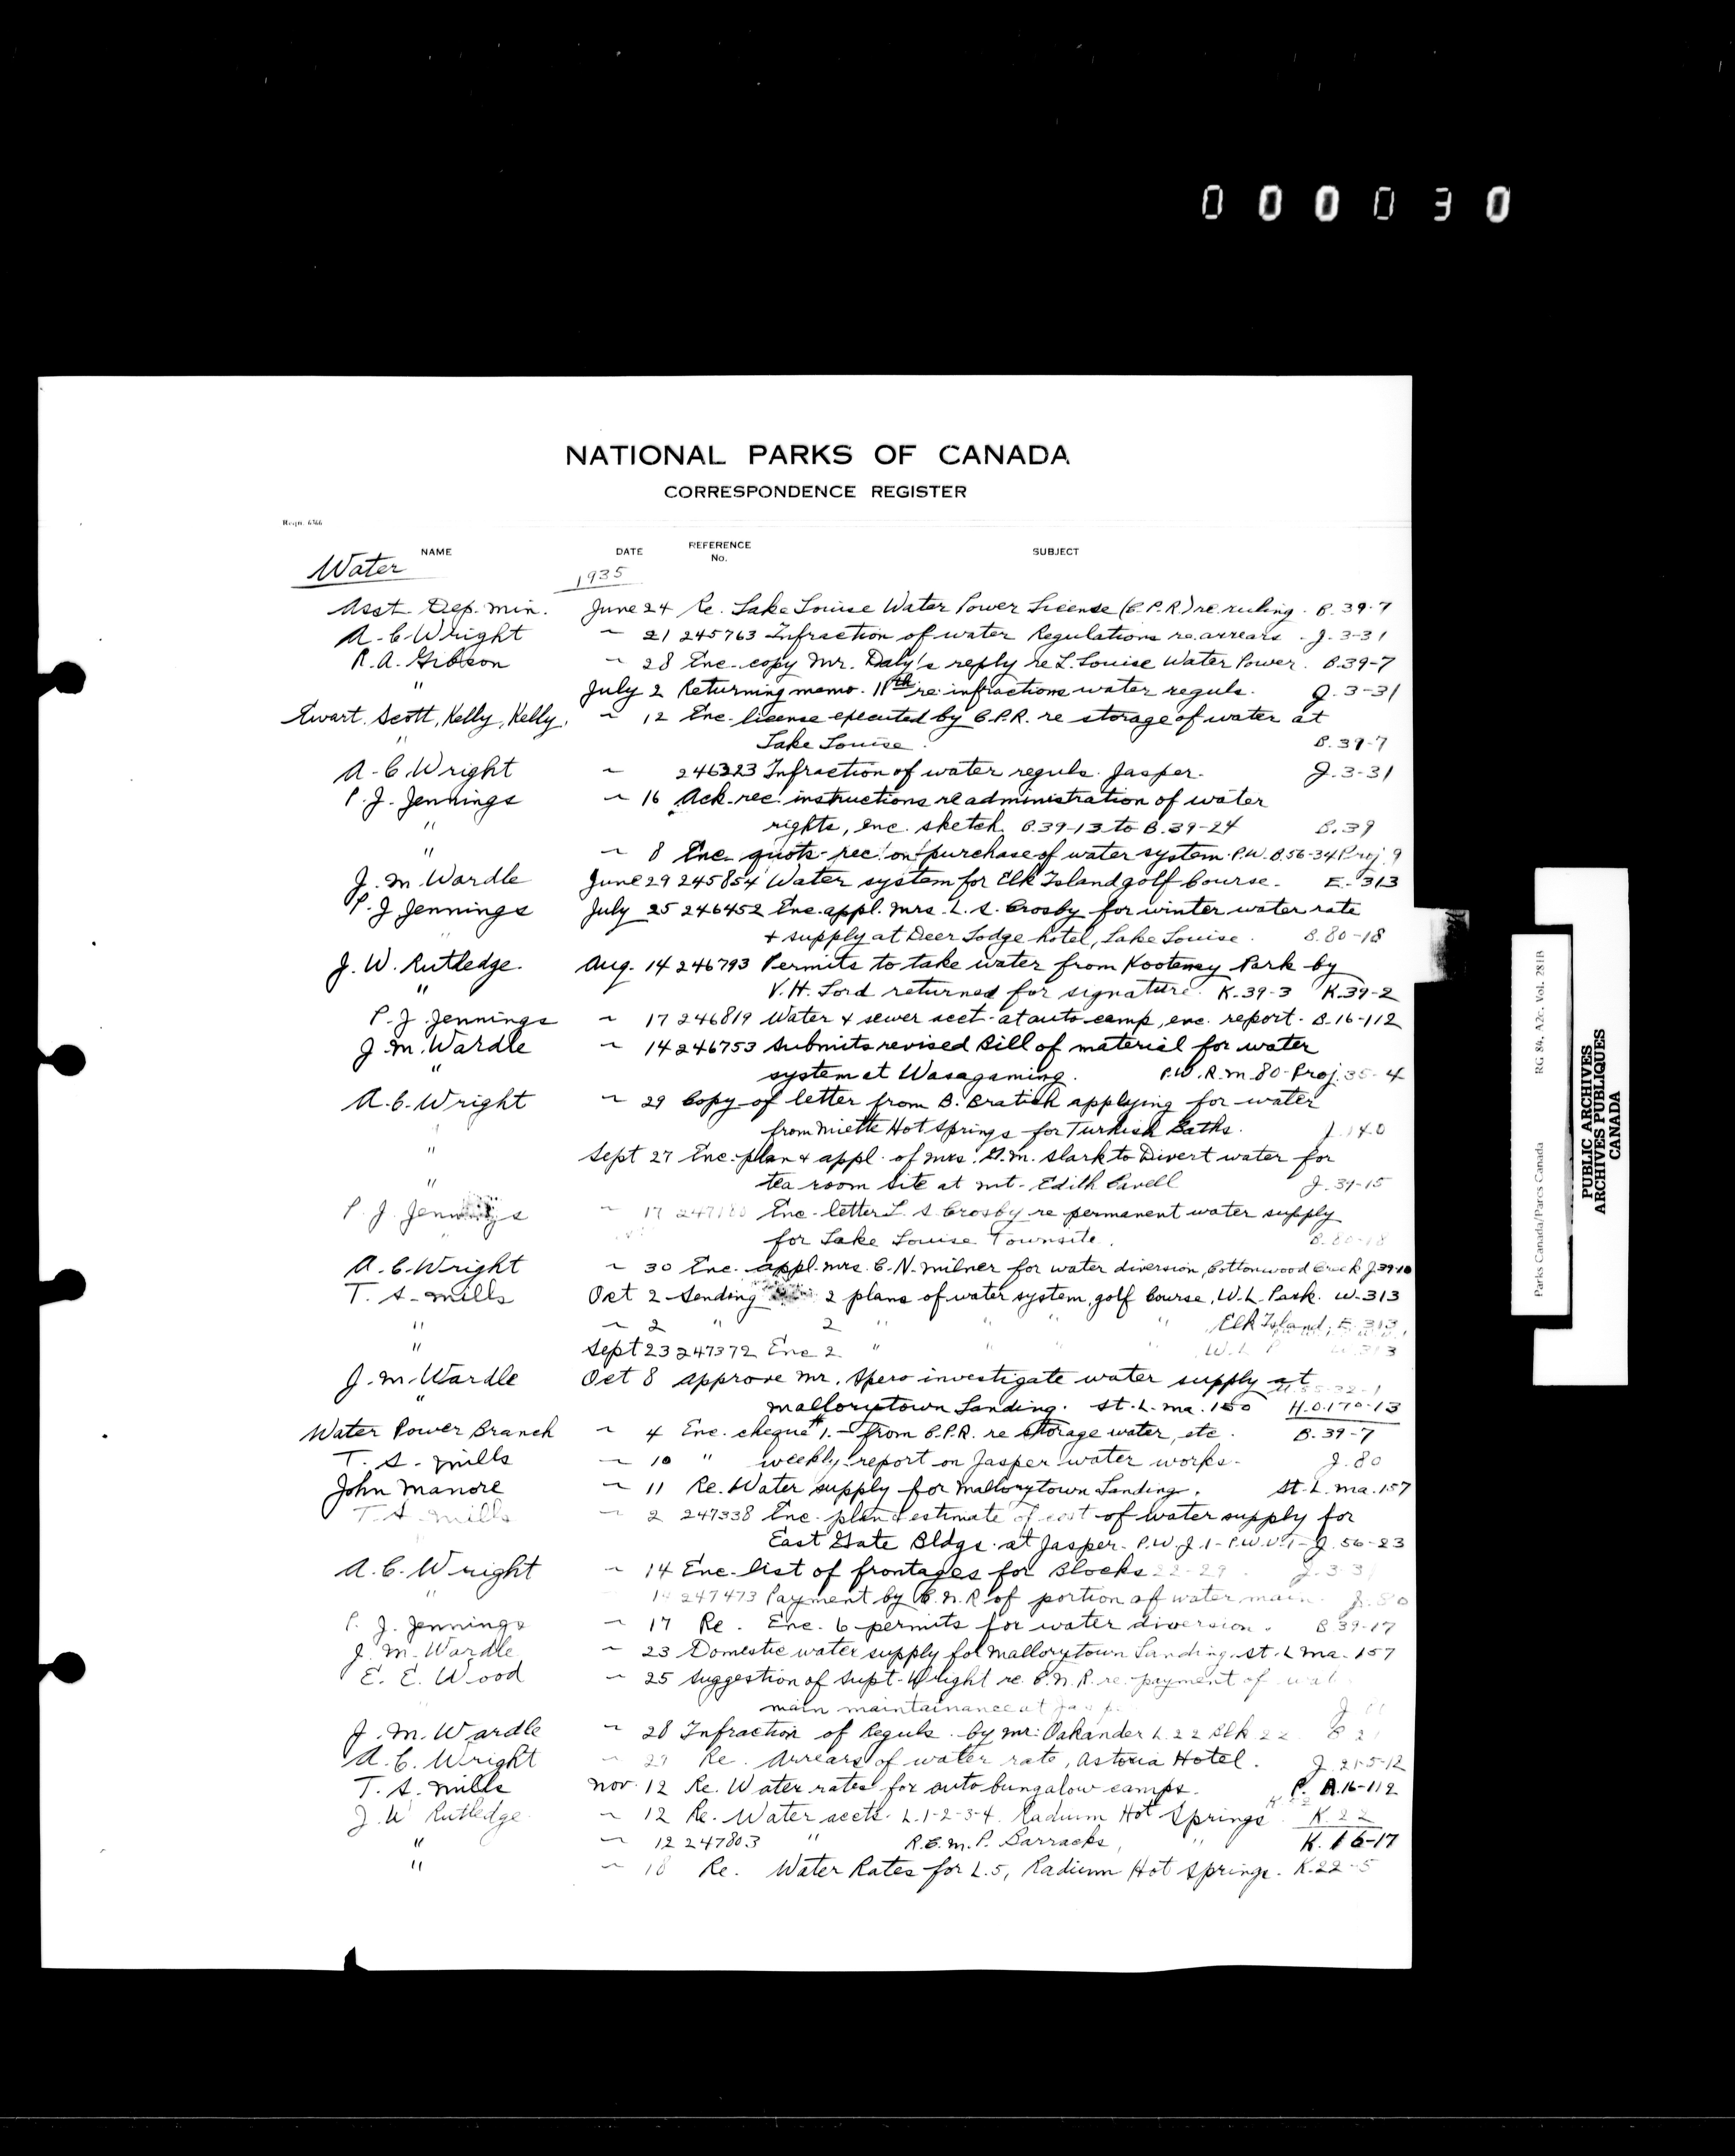 000030
NATIONAL PARKS OF CANADA
CORRESPONDENCE REGISTER
Reqn. 6366
NAME DATE REFERENCE No. SUBJECT
Water 1935
Asst. Dep. Min. June 24 Re. Lake Louise Water Power License (C.P.R.) re ruling. B.39-7
A.C. Wright " 21 245763 Infraction of water Regulations re. arrears. J.3-31
R.A. Gibson " 28 Enc. copy Mr. Daly's reply re L. Louise Water Power. B.39-7
" July 2 Returning memo. 11th re infractions water reguls. J.3-31
Ewart, Scott, Kelly, Kelly. " 12 Enc. license executed by C.P.R. re storage of water at
" Lake Louise. B.39-7
A.C. Wright " 246323 Infraction of water reguls. Jasper. J.3-31
P.J. Jennings " 16 Ack. rec. instructions re administration of water
" rights, enc. sketch. B.39-13 to B.39-24 B.39
" " 8 Enc. quots. rec. on purchase of water system. P.W.B.56-34 Proj. 9
J.M. Wardle June 29 245854 Water system for Elk Island golf Course. E.313
P.J. Jennings July 25 246452 Enc. appl. Mrs. L.S. Crosby for winter water rate
" + supply at Deer Lodge hotel, Lake Louise. B.80-18
J.W. Rutledge. Aug. 14 246793 Permits to take water from Kootenay Park by
" V.H. Lord returned for signature. K.39-3 K.39-2
P.J. Jennings " 17 246819 Water & sewer acct. at auto camp, enc. report. B.16-112
J.M. Wardle " 14 246753 Submits revised Bill of material for water
" system at Wasagaming. P.W.R.M.80-Proj.35-4
A.C. Wright " 29 Copy of letter from B. Bratich applying for water
" from Miette Hot Springs for Turkish Baths. J.140
" Sept 27 Enc. plan & appl. of Mrs. G.M. Slark to Divert water for
" tea room site at Mt. Edith Cavell J.39-15
P.J. Jennings " 17 Enc. letter L.S. Crosby re permanent water supply
" for Lake Louise Townsite. B.80-18
A.C. Wright " 30 Enc. appl. Mrs. C.N. Milner for water diversion, Cottonwood Creek J.39-10
T.S. Mills Oct 2 Sending 2 plans of water system, golf Course, W.L. Park. W.313
" " 2 " 2 " " " " Elk Island. E.313
" Sept 23 247372 Enc 2 " " " " W.L. P W.313
J.M. Wardle Oct 8 Approve Mr. Spero investigate water supply at
" Mallorytown Landing. St.L.Ma.150 H.O.170-13
Water Power Branch " 4 Enc. cheque $1.- from C.P.R. re storage water, etc. B.39-7
T.S. Mills " 10 " weekly report on Jasper water works. J.80
John Manore " 11 Re. Water supply for Mallorytown Landing. St.L.Ma.157
T.S. Mills " 2 247338 Enc. plan & estimate of cost of water supply for
East Gate Bldgs. at Jasper. P.W.J.1-P.W.U.1-J.56-23
A.C. Wright " 14 Enc. list of frontages for Blocks 22-29. J.3-3
" 247473 Payment by C.N.R. of portion of water main. J.80
P.J. Jennings " 17 Re. Enc. 6 permits for water diversion. B.39-17
J.M. Wardle " 23 Domestic water supply for Mallorytown Landing. St.L.Ma.157
E.E. Wood " 25 Suggestion of Supt. Wright re. C.N.R. re payment of
main maintainance at
J.M. Wardle " 28 Infraction of Reguls. by Mr. Oakander L.22 Blk 22
A.C. Wright " 29 Re. Arrears of water rate, Astoria Hotel. J.21-5-12
T.S. Mills Nov. 12 Re. Water rates for auto bungalow camps. P. A.16-112
J.W. Rutledge " 12 Re. Water accts. L.1-2-3-4. Radium Hot Springs K.22
" " 12 247803 " R.C.M.P. Barracks, " K.16-17
" " 18 Re. Water Rates for L.5, Radium Hot Springs. K.22-5
Parks Canada/Parcs Canada RG 84, A2c, Vol. 281B
PUBLIC ARCHIVES
ARCHIVES PUBLIQUES
CANADA